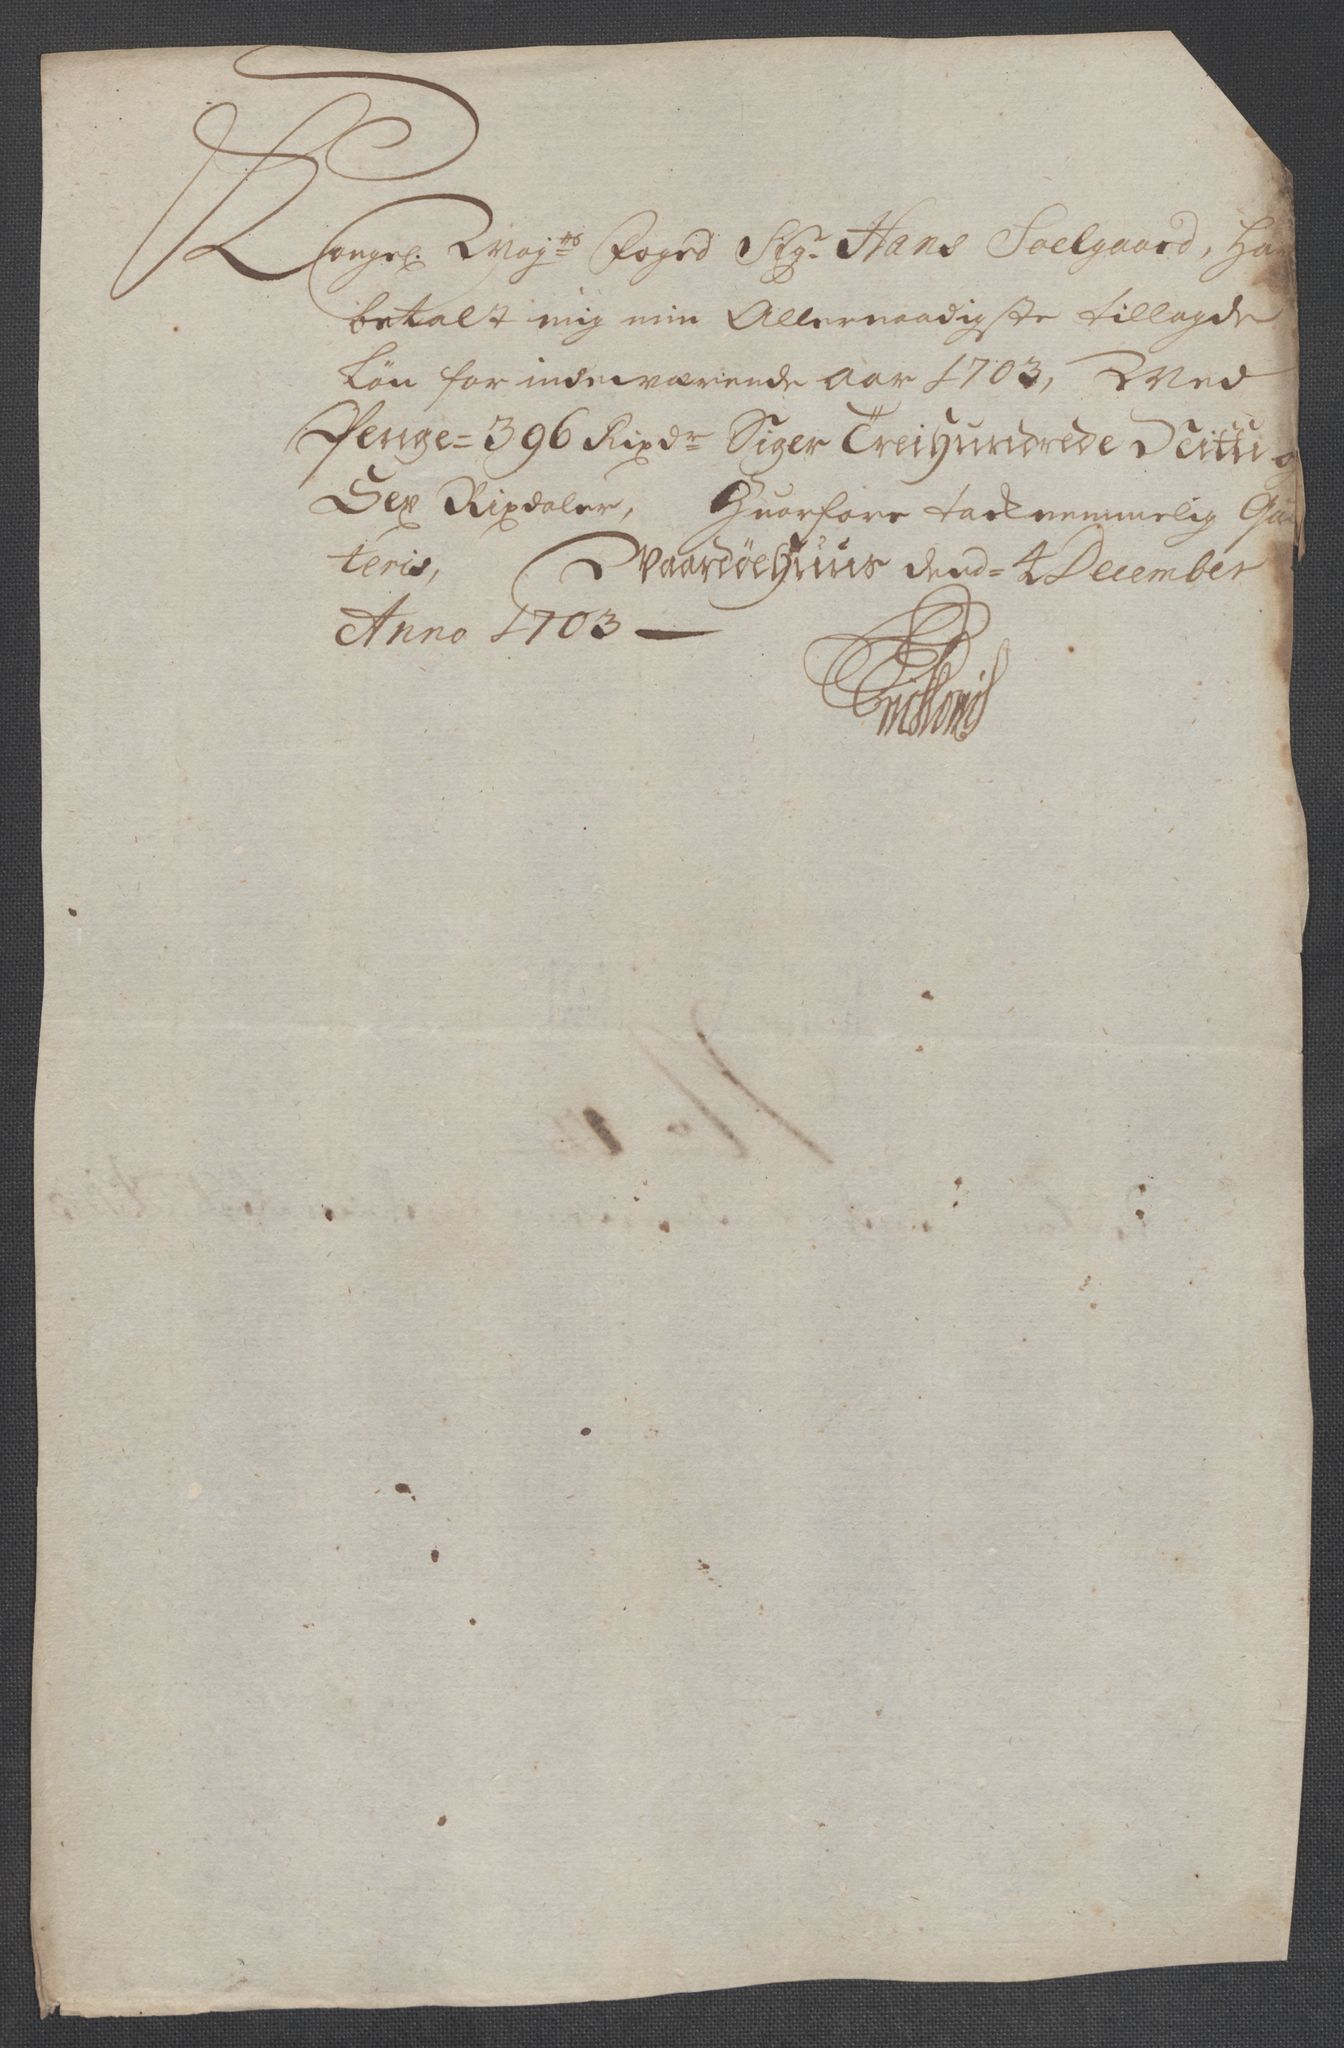 Kongel. Maÿ:ts Foged Sigr. Hans Soelgaard, Ha
betalt mig min Allernaadigste tillagde
Løn for indeværende aar 1703, Med
Penge = 396 Rixdr Siger Treihundrede Nitti og
Sex Rixdaler, Huorfore tacknemmelig Qui
teris, Vaardøehuus dend = 4 December
Anno 1703